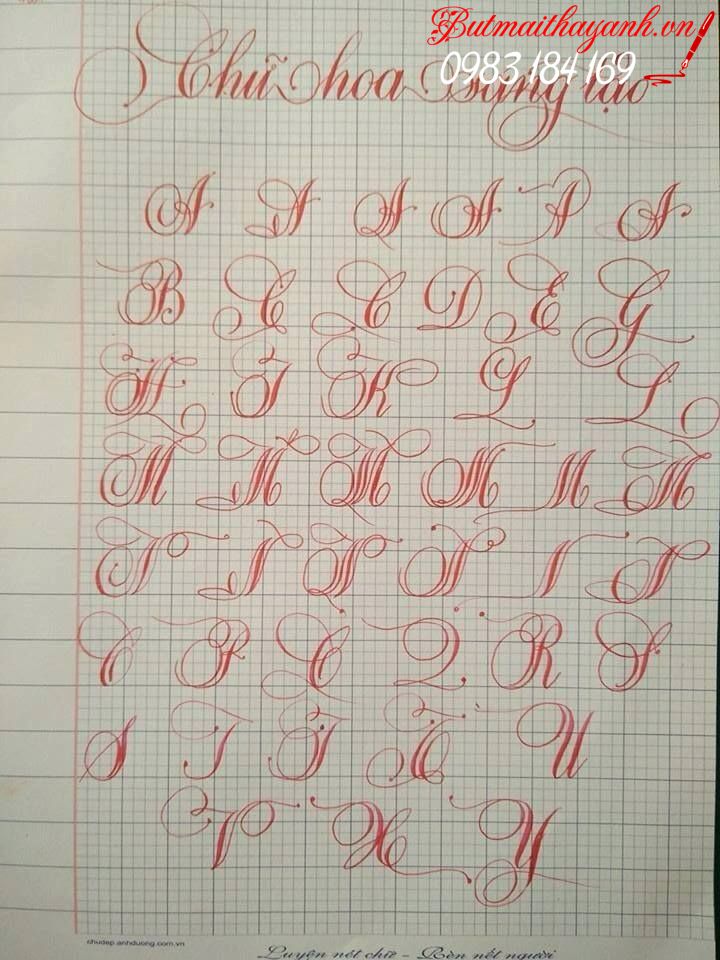 Butmaithayanh.vn
0983 184 169
Chữ hoa sáng tạo
A A A A A A
B C C D E G
H I K L L
M M M M M M
N N N N N N
P Q R S
S T T T U
V X Y
chudep.anhduong.com.vn
Luyện nét chữ - Rèn nết người